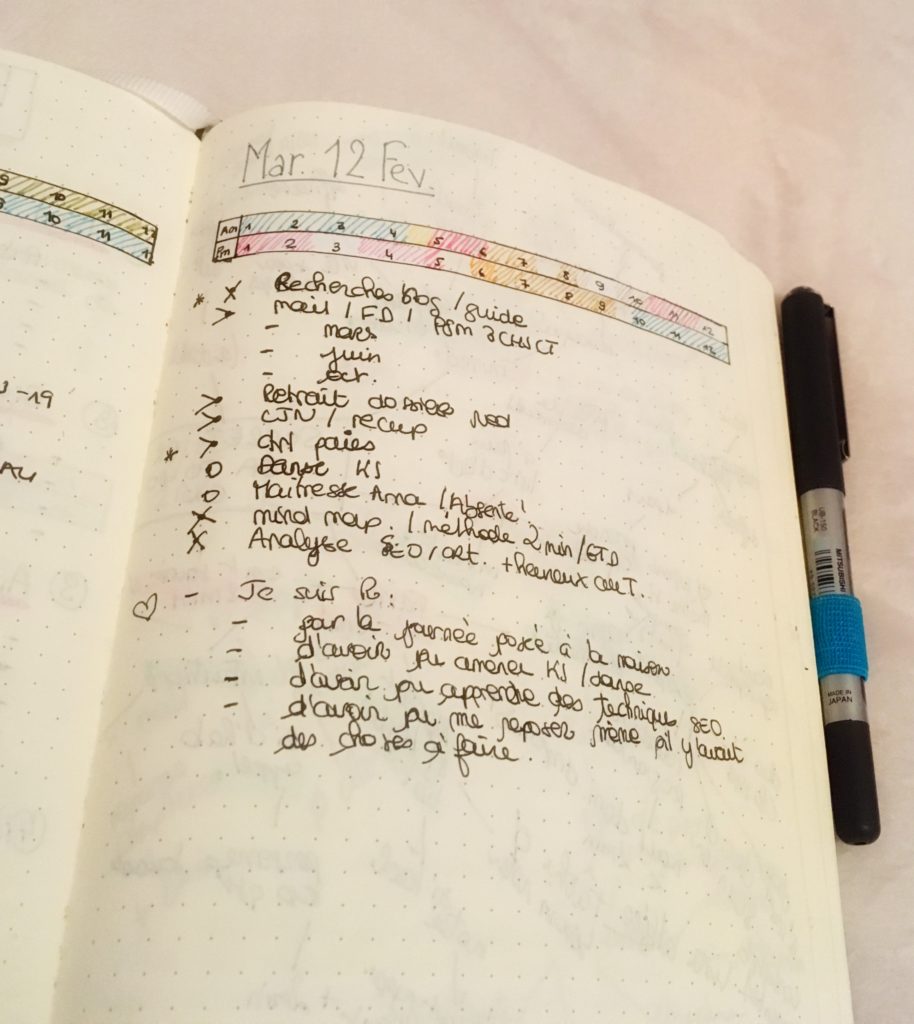 Mar. 12 Fev.
Am 1 2 3 4 5 6 7 8 9 10 11 12
Pm 1 2 3 4 5 6 7 8 9 10 11 12
9 10 11 12
9 10 11 12
-19
* x Recherches blog / guide
> mail / FD /
- mars
- juin
- oct.
> Retrait
> CJN / recup
* > paies
o Danse KS
o Maitresse Ama / Absente !
x mind map. / méthode 2 min / GTD
x Analyse SEO / art.
♡ - Je suis
- par la journée posé à la maison
- d'avoir pu amener KS / danse
- d'avoir pu apprendre des technique SEO
- d'avoir pu me reposer même s'il y avait
des choses à faire.
UB-150
BLACK
MITSUBISHI
MADE IN
JAPAN